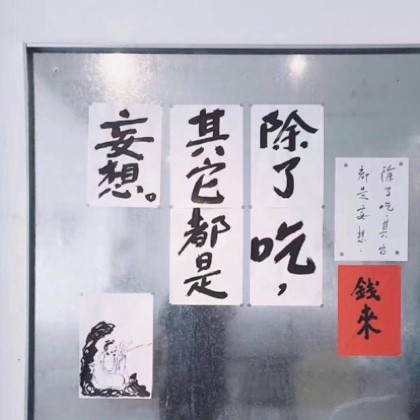 除了吃，
其它都是
妄想。
除了吃,其它
都是妄想.
錢來